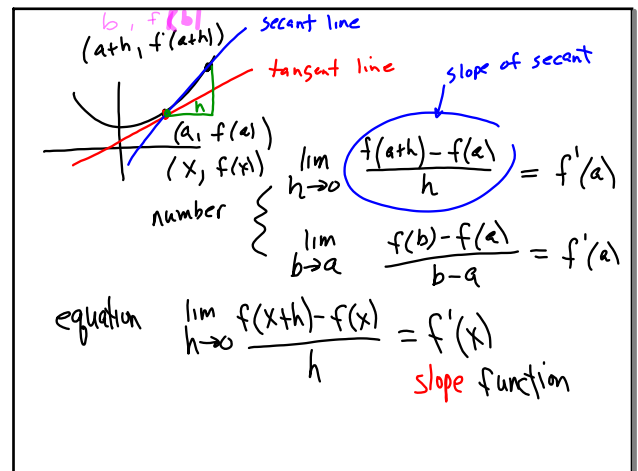 b, f(b)
(a+h, f(a+h))
secant line
tangent line
slope of secant
h
(a, f(a))
(x, f(x))
number
lim h→0 f(a+h) - f(a) / h = f'(a)
lim b→a f(b) - f(a) / b - a = f'(a)
equation lim h→0 f(x+h) - f(x) / h = f'(x)
slope function